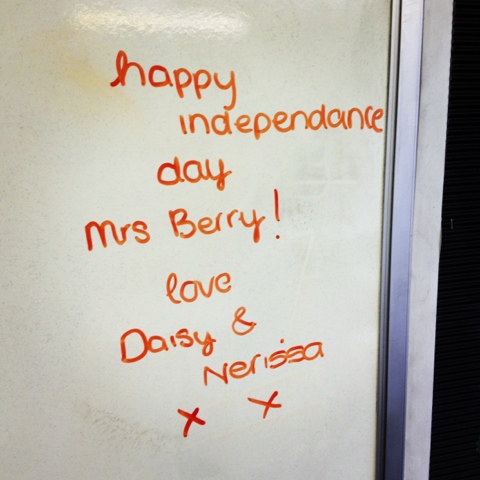 happy
independance
day
Mrs Berry!
love
Daisy &
Nerissa
x x